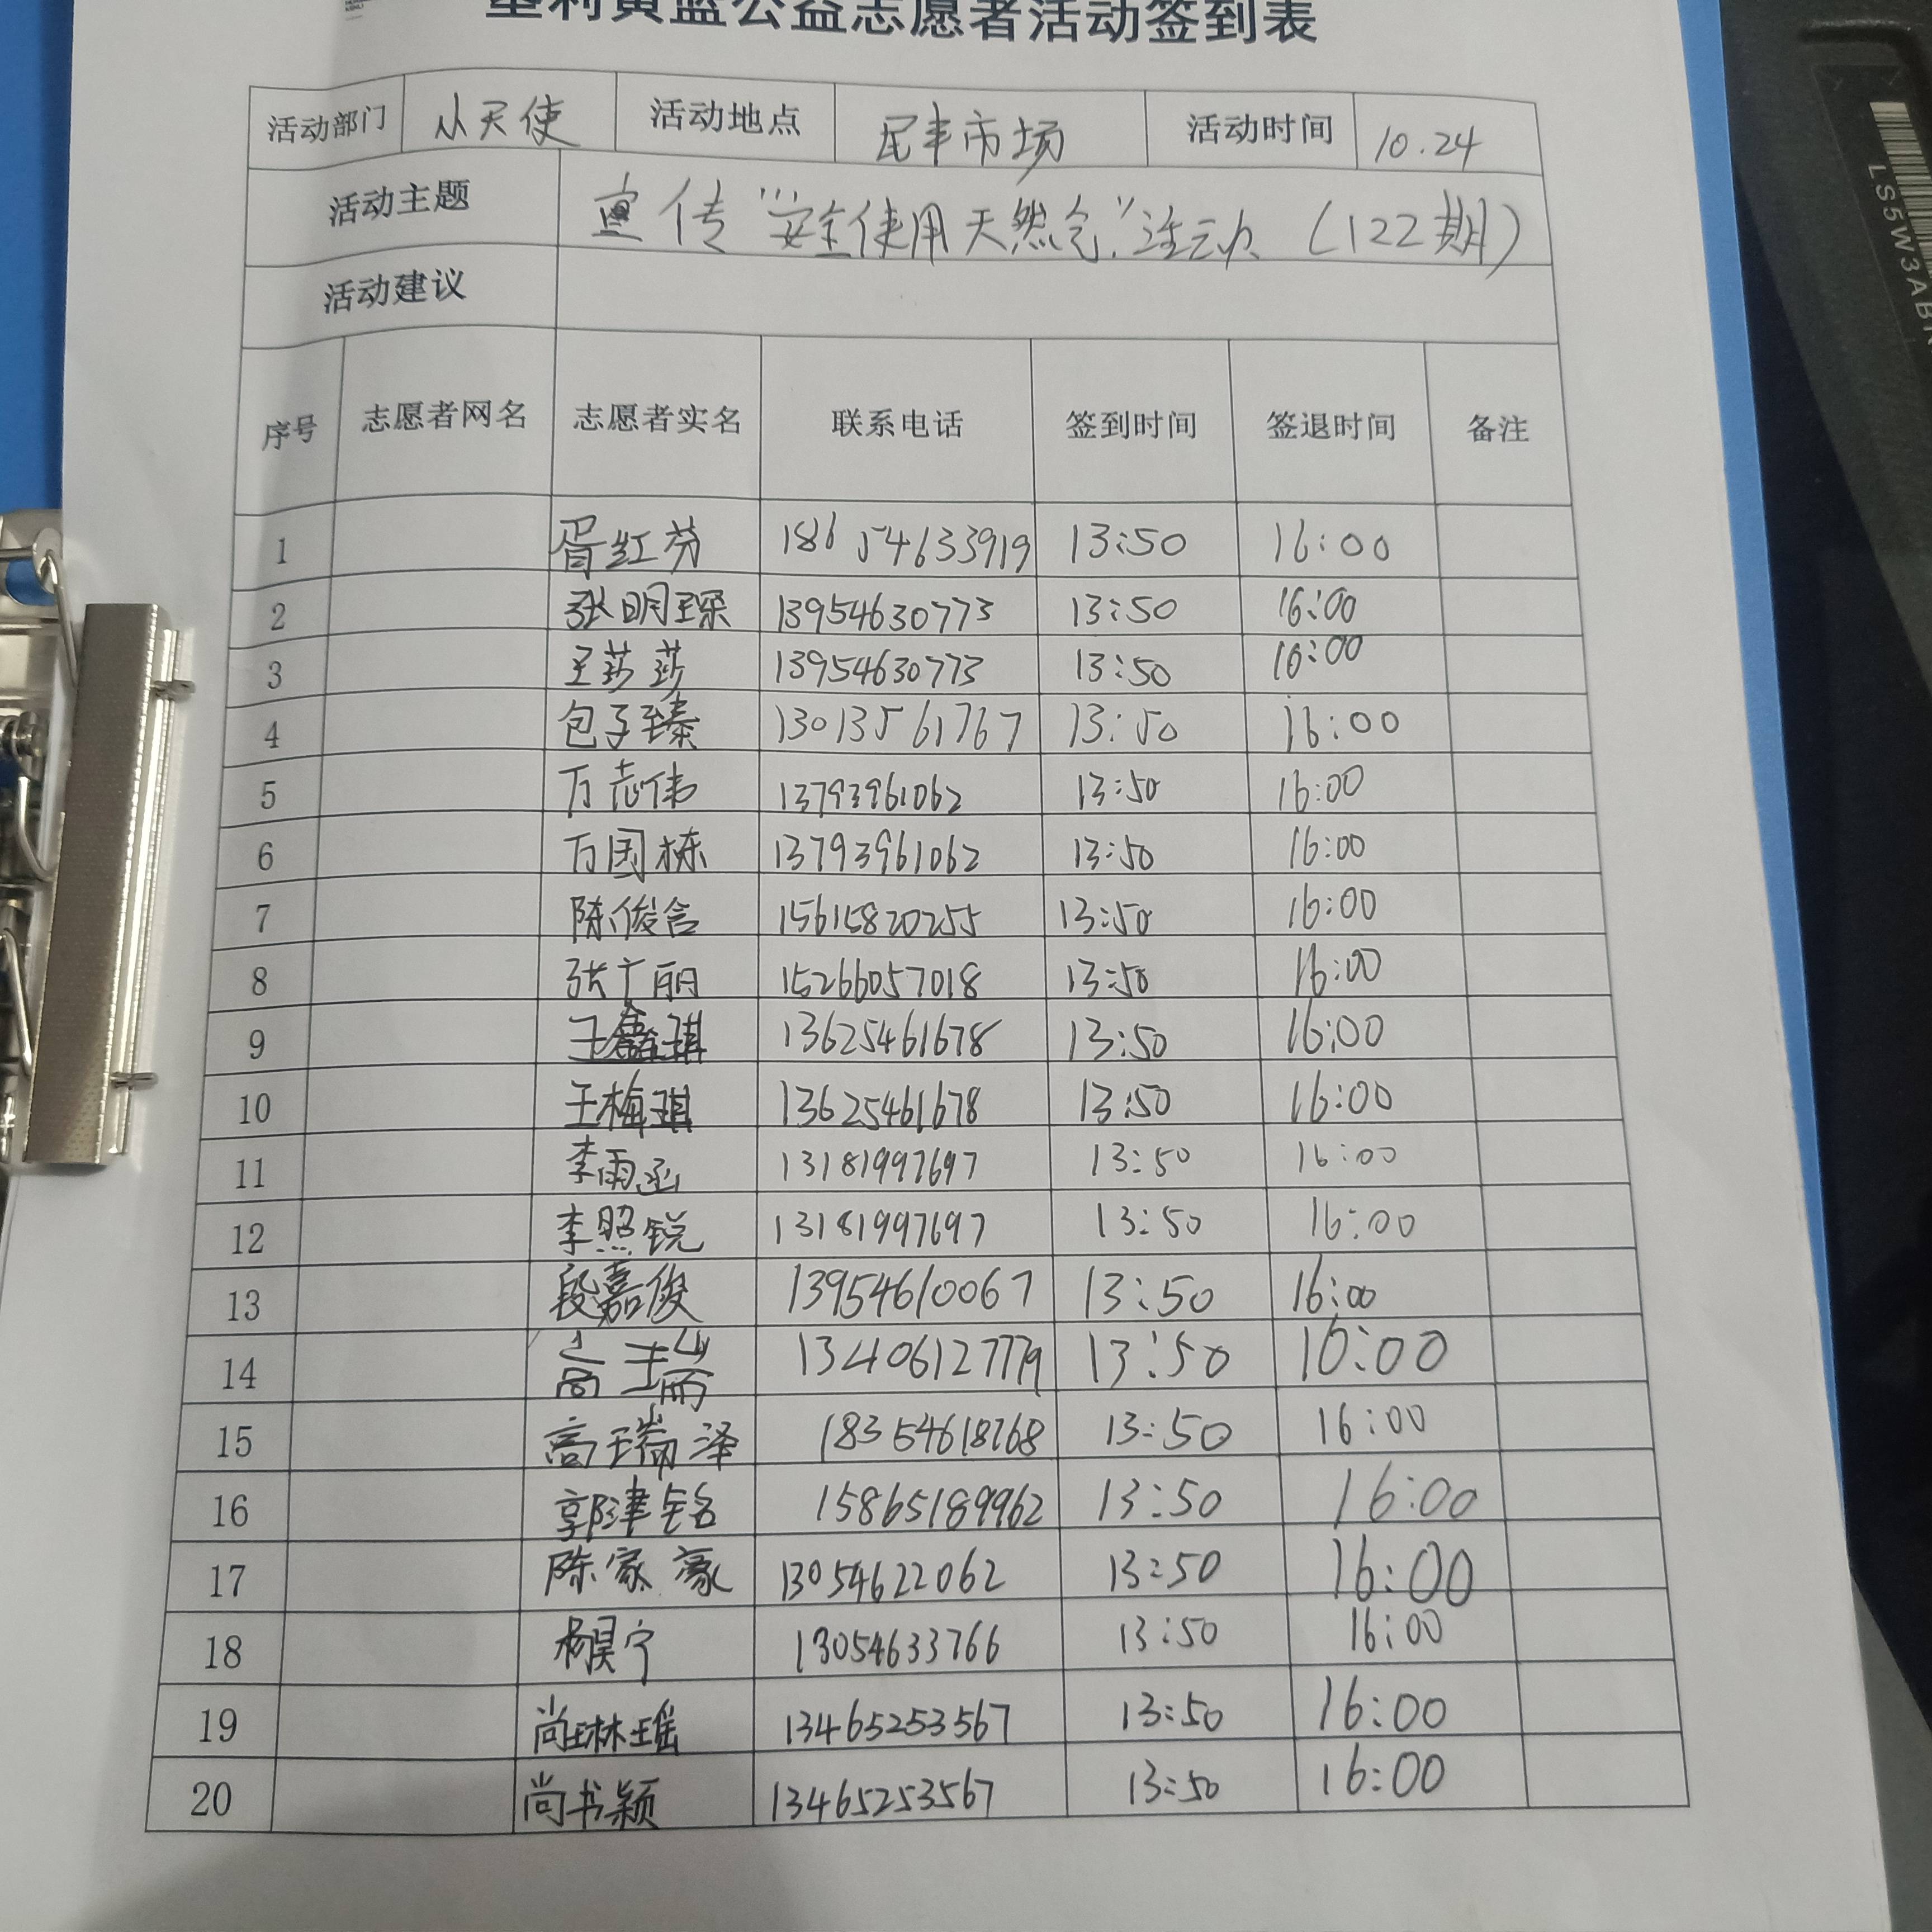 垦利黄蓝公益志愿者活动签到表
活动部门 小天使 活动地点 民丰市场 活动时间 10.24
活动主题 宣传“安全使用天然气”活动（122期）
活动建议
序号 志愿者网名 志愿者实名 联系电话 签到时间 签退时间 备注
1 胥红芬 18654633919 13:50 16:00
2 张明琛 13954630773 13:50 16:00
3 王莎莎 13954630773 13:50 16:00
4 包子臻 13013561767 13:50 16:00
5 万志伟 13793961062 13:50 16:00
6 万国栋 13793961062 13:50 16:00
7 陈俊含 15615820255 13:50 16:00
8 张广丽 15266057018 13:50 16:00
9 王鑫琪 13625461678 13:50 16:00
10 王梅琪 13625461678 13:50 16:00
11 李雨函 13181997697 13:50 16:00
12 李照锐 13181997697 13:50 16:00
13 段嘉俊 13954610067 13:50 16:00
14 高瑞 13406127779 13:50 16:00
15 高瑞泽 18354618768 13:50 16:00
16 郭津铭 15865189962 13:50 16:00
17 陈家豪 13054622062 13:50 16:00
18 杨昊宁 13054633766 13:50 16:00
19 尚琳瑶 13465253567 13:50 16:00
20 尚书颖 13465253567 13:50 16:00